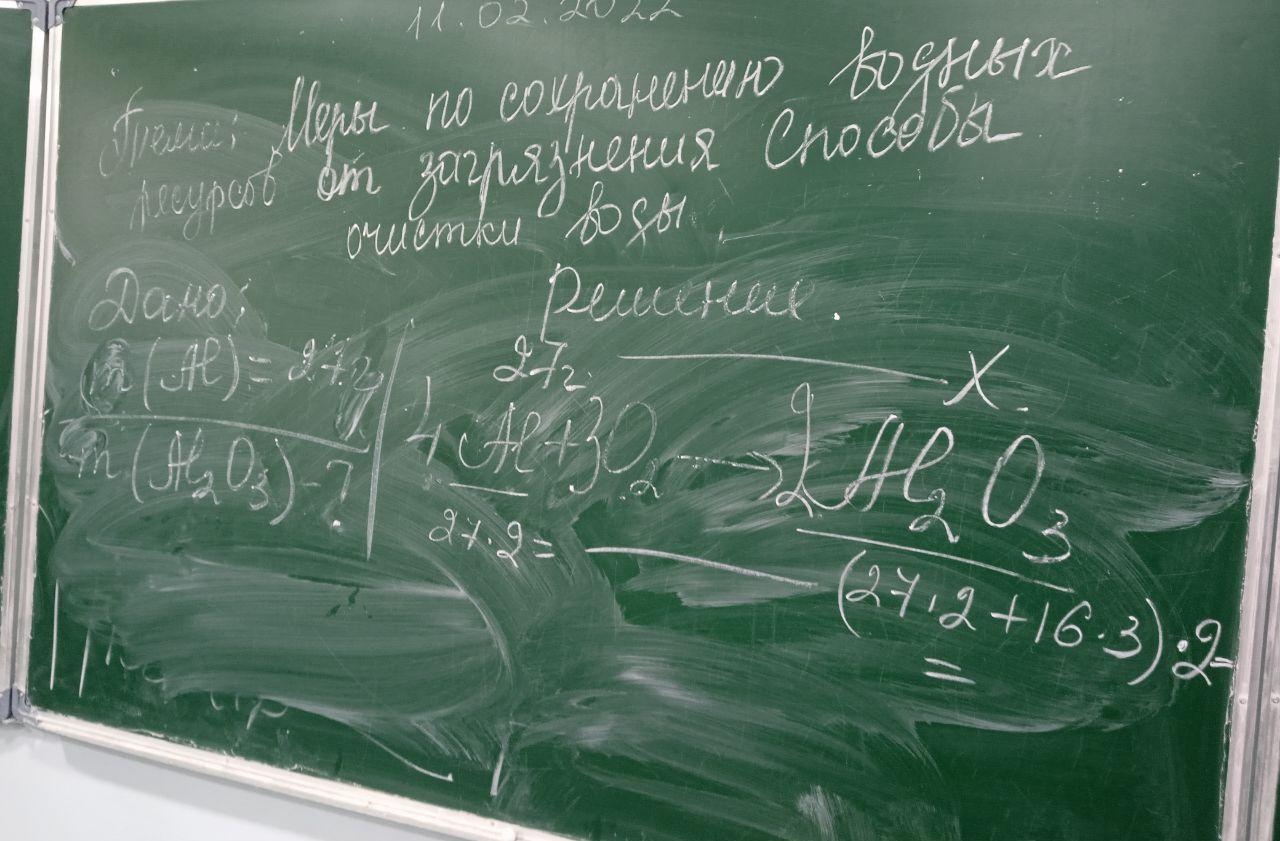 11.02.2022
Тема: Меры по сохранению водных
ресурсов от загрязнения Способы
очистки воды.
Дано:
Решение.
m(Al)=27г
27г. — x.
4Al+3O2 → 2Al2O3
m(Al2O3)-?
27·2= — (27·2+16·3)·2=
=